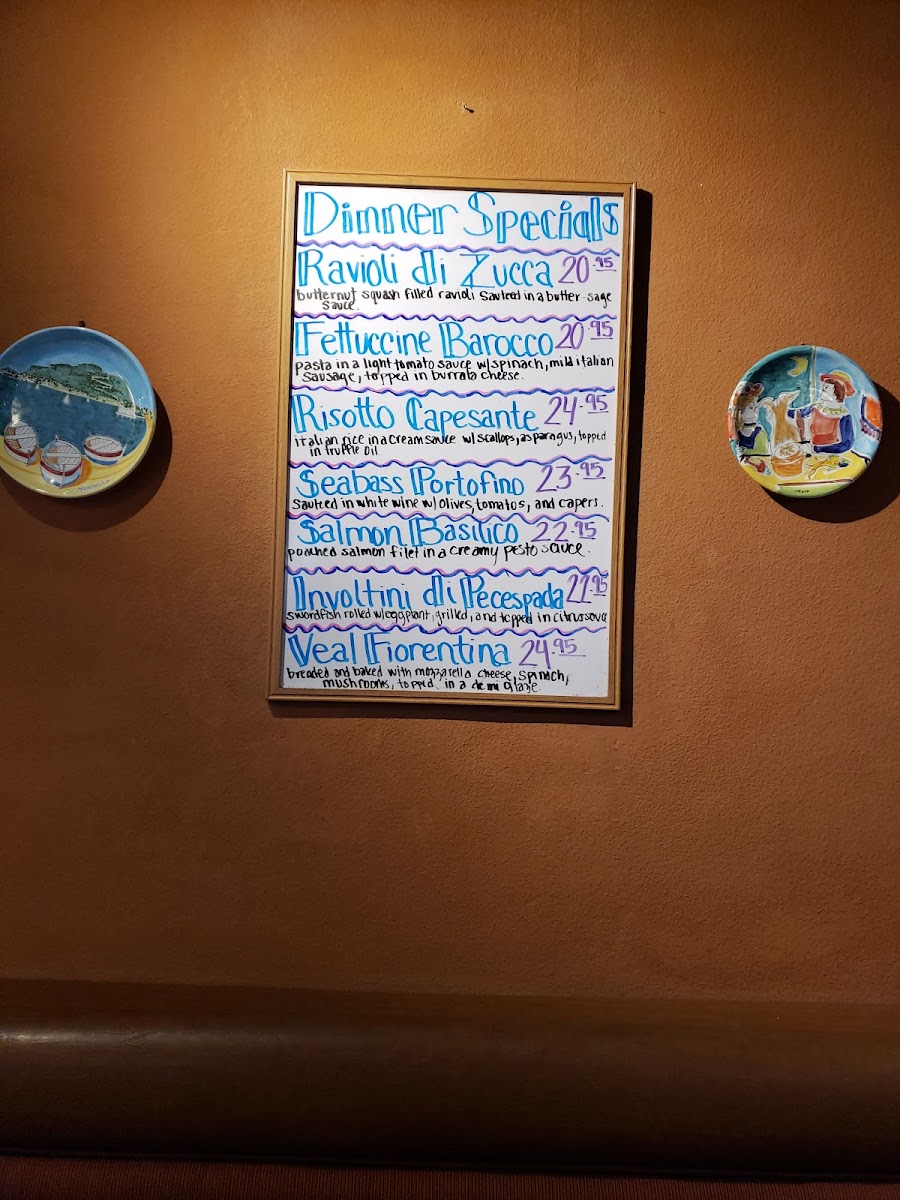 Dinner Specials
Ravioli di Zucca 20.95
butternut squash filled ravioli sauteed in a butter-sage
sauce.
Fettuccine Barocco 20.95
pasta in a light tomato sauce w/spinach, mild italian
sausage, topped in burrata cheese.
Risotto Capesante 24.95
italian rice in a cream sauce w/ scallops, asparagus, topped
in truffle oil
Seabass Portofino 23.95
sauteed in white wine w/ olives, tomatos, and capers.
Salmon Basilico 22.95
poached salmon filet in a creamy pesto sauce.
Involtini di Pecespada 22.95
swordfish rolled w/eggplant, grilled, and topped in citrus sauce
Veal Fiorentina 24.95
breaded and baked with mozzarella cheese, spinach,
mushrooms, topped in a demi glaze.